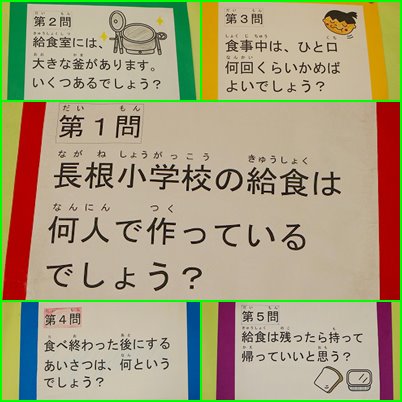 だい もん
第２問
きゅうしょくしつ
給食室には、
おお かま
大きな釜があります。
いくつあるでしょう？
だい もん
第３問
しょくじちゅう くち
食事中は、ひと口
なんかい
何回くらいかめば
よいでしょう？
だい もん
第１問
ながねしょうがっこう きゅうしょく
長根小学校の給食は
なんにん つく
何人で作っている
でしょう？
だい もん
第４問
た お あと
食べ終わった後にする
なん
あいさつは、何という
でしょう？
だい もん
第５問
きゅうしょく のこ も
給食は残ったら持って
かえ おも
帰っていいと思う？